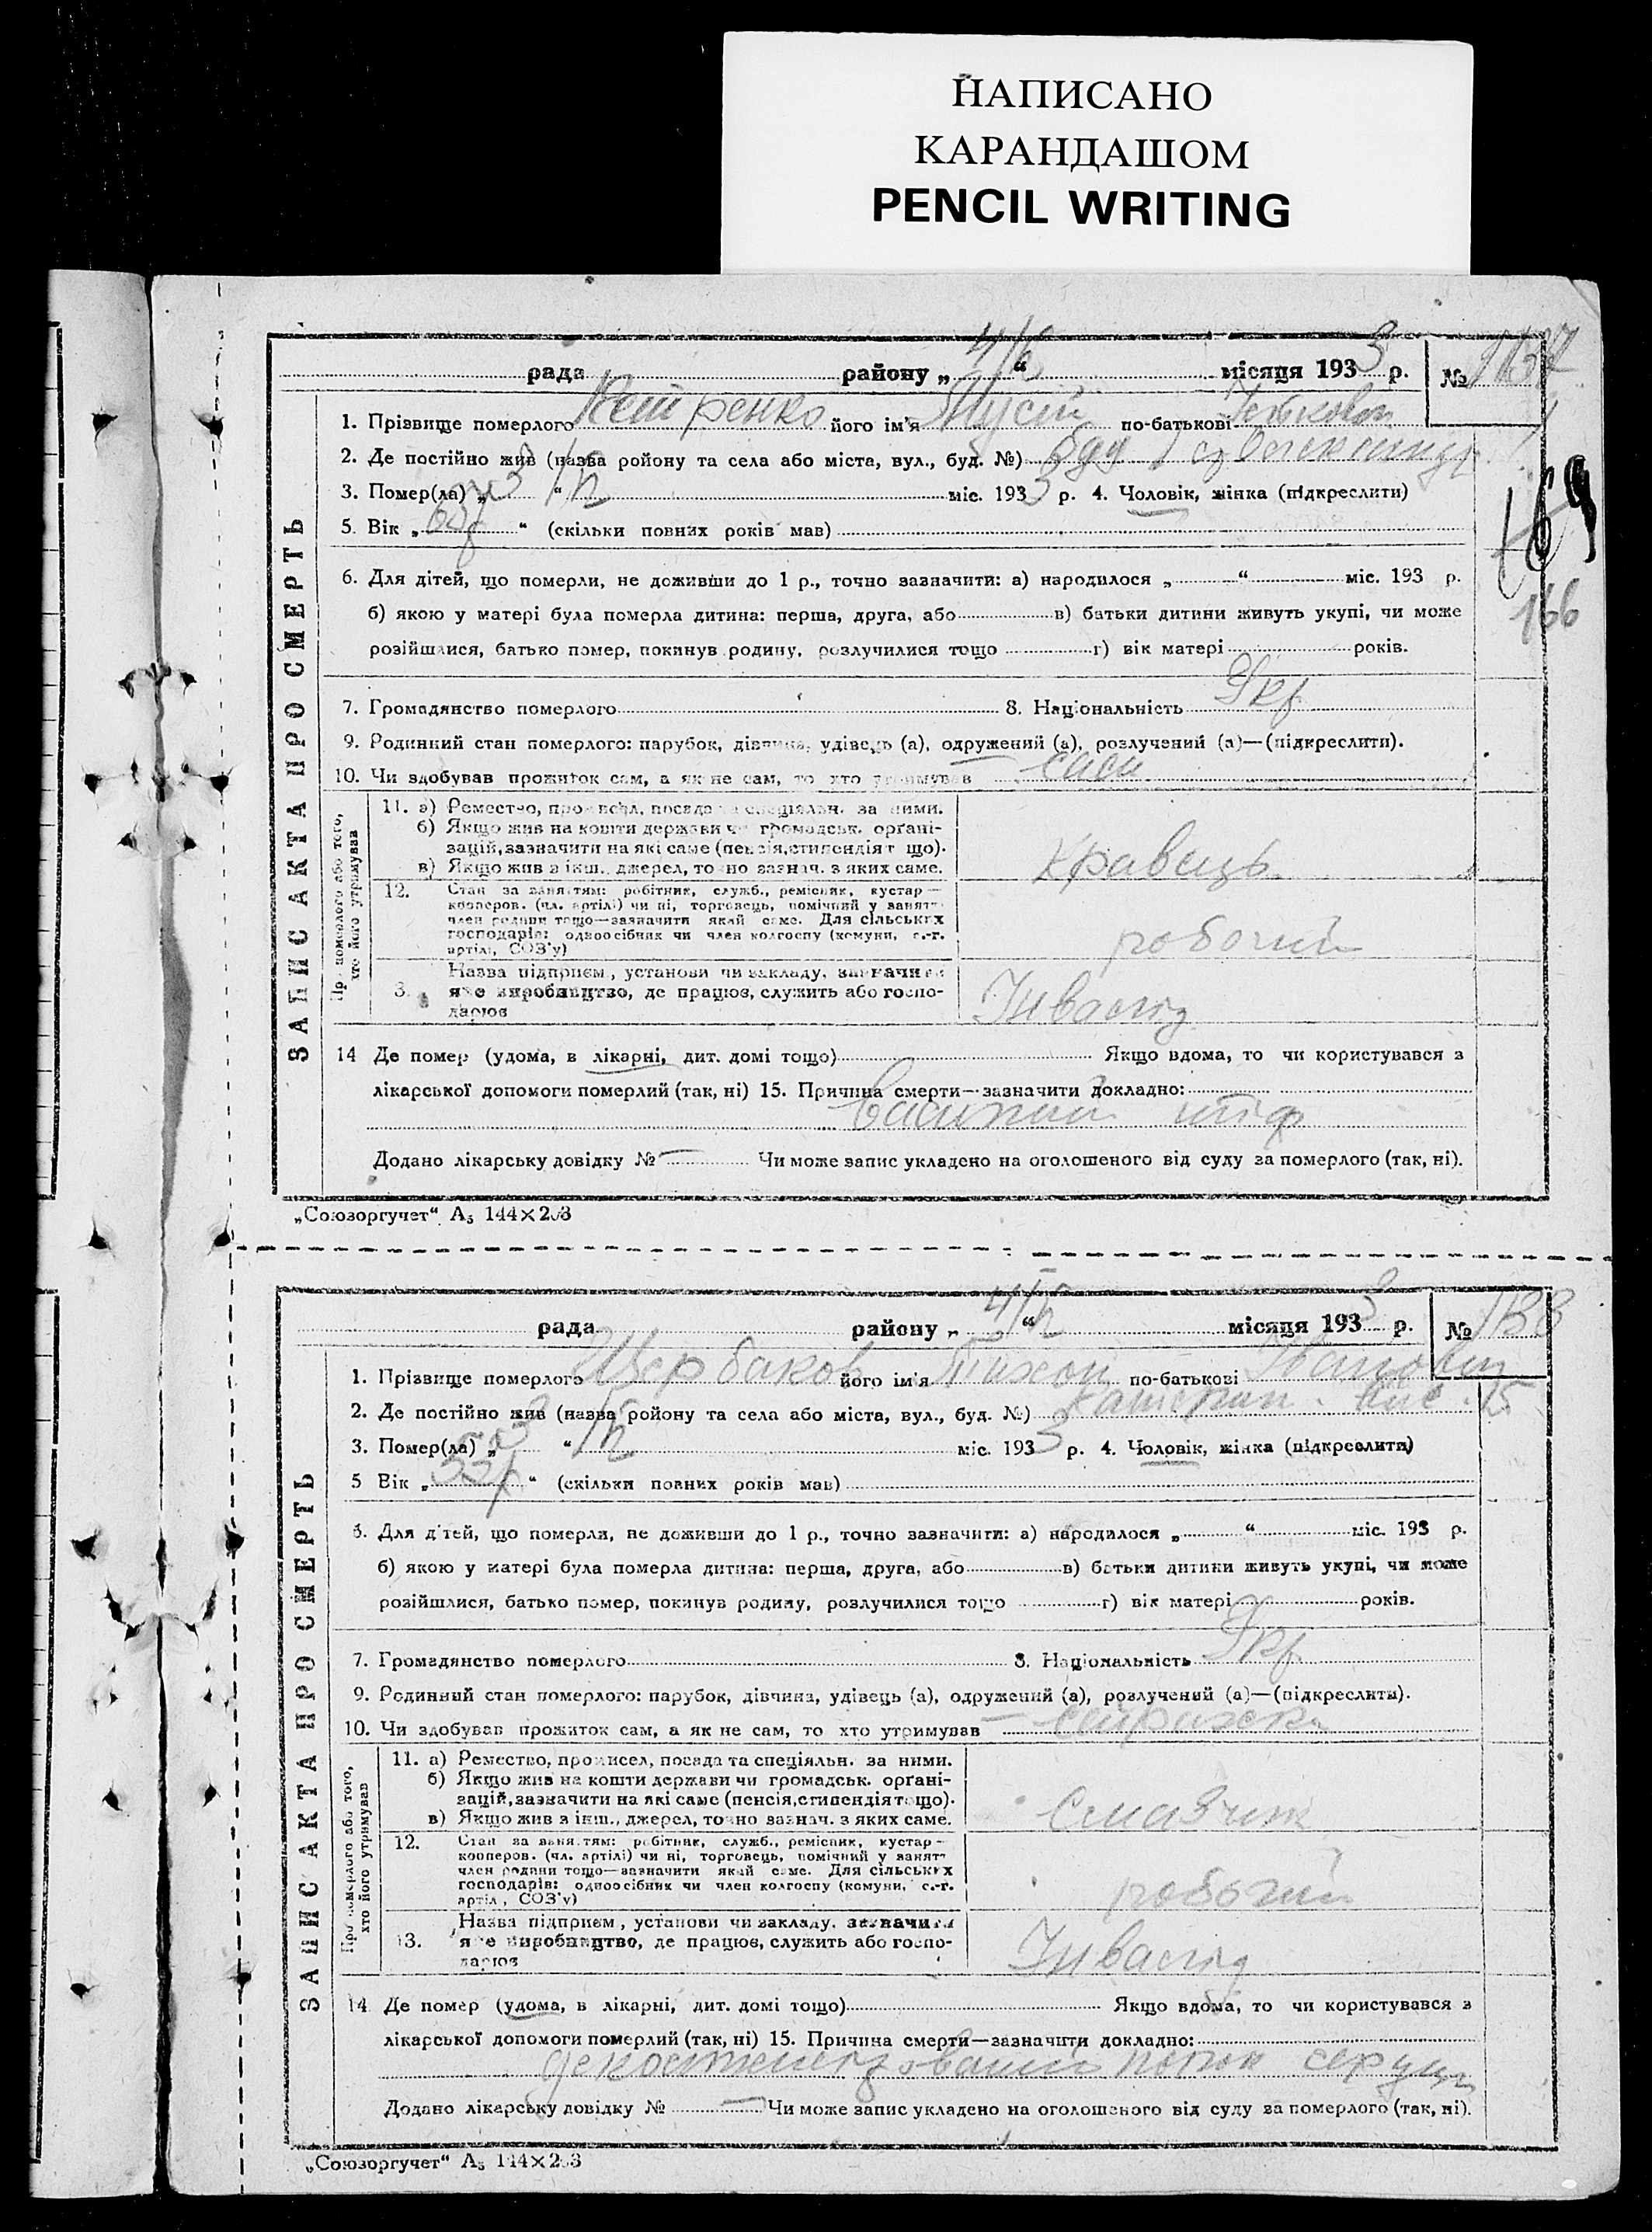 НАПИСАНО
КАРАНДАШОМ
PENCIL WRITING
рада району „ 4/ “ місяця 1933 р. №
1. Прізвище померлого Петренко його ім'я Мусій по-батькові
2. Де постійно жив (назва ройону та села або міста, вул., буд. №)
3. Помер(ла) „3“ міс. 1933 р. 4. Чоловік, жінка (підкреслити)
5. Вік „ “ (скільки повних років мав)
169
166
6. Для дітей, що померли, не доживши до 1 р., точно зазначити: а) народилося „ “ міс. 193 р.
б) якою у матері була померла дитина: перша, друга, або в) батьки дитини живуть укупі, чи може
розійшлися, батько помер, покинув родину, розлучилися тощо г) вік матері років.
7. Громадянство померлого 8. Національність Укр.
9. Родинний стан померлого: парубок, дівчина, удівець (а), одружений (а), розлучений (а)—(підкреслити).
10. Чи здобував прожиток сам, а як не сам, то хто утримував сам
ЗАПИС АКТА ПРО СМЕРТЬ
Про померлого або того, хто його утримував
11. а) Ремество, промисел, посада та спеціяльн. за ними.
б) Якщо жив на кошти держави чи громадськ. орґані-
зацій, зазначити на які саме (пенсія, стипендія т що).
в) Якщо жив з інш. джерел, точно зазнач. з яких саме.
Кравець
12. Стан за заняттям: робітник, служб., ремісник, кустар —
кооперов. (чл. артілі) чи ні, торговець, помічний у занятт
член родини тощо—зазначити який саме. Для сільських
господарів: одноосібник чи член колгоспу (комуни, с.-г.
артілі, СОЗ'у)
робочий
3. Назва підприєм., установи чи закладу, зазначити
яке виробництво, де працює, служить або госпо-
дарює
14 Де помер (удома, в лікарні, дит. домі тощо) Якщо вдома, то чи користувався з
лікарської допомоги померлий (так, ні) 15. Причина смерти—зазначити докладно:
тіф
Додано лікарську довідку № — Чи може запис укладено на оголошеного від суду за померлого (так, ні).
„Союзоргучет“ А₅ 144×203
рада району „ 4/ “ місяця 1933 р. № 1138
1. Прізвище померлого Щербаков його ім'я Тихон по-батькові Іванович
2. Де постійно жив (назва ройону та села або міста, вул., буд. №) 15
3. Помер(ла) „3“ міс. 1933 р. 4. Чоловік, жінка (підкреслити)
5 Вік „55р“ (скільки повних років мав)
6. Для дітей, що померли, не доживши до 1 р., точно зазначити: а) народилося „ “ міс. 193 р.
б) якою у матері була померла дитина: перша, друга, або в) батьки дитини живуть укупі, чи може
розійшлися, батько помер, покинув родину, розлучилися тощо г) вік матері років.
7. Громадянство померлого 8. Національність Укр.
9. Родинний стан померлого: парубок, дівчина, удівець (а), одружений (а), розлучений (а)—(підкреслити).
10. Чи здобував прожиток сам, а як не сам, то хто утримував
ЗАПИС АКТА ПРО СМЕРТЬ
Про померлого або того, хто його утримував
11. а) Ремество, промисел, посада та спеціяльн. за ними.
б) Якщо жив на кошти держави чи громадськ. орґані-
зацій, зазначити на які саме (пенсія, стипендія тощо).
в) Якщо жив з інш. джерел, точно зазнач. з яких саме.
Смазчик
12. Стан за заняттям: робітник, служб., ремісник, кустар —
кооперов. (чл. артілі) чи ні, торговець, помічний у занятт
член родини тощо—зазначити який саме. Для сільських
господарів: одноосібник чи член колгоспу (комуни, с.-г.
артіл., СОЗ'у)
робочий
13. Назва підприєм., установи чи закладу, зазначити
яке виробництво, де працює, служить або госпо-
дарює
14 Де помер (удома, в лікарні, дит. домі тощо) Якщо вдома, то чи користувався з
лікарської допомоги померлий (так, ні) 15. Причина смерти—зазначити докладно:
порок серця
Додано лікарську довідку № — Чи може запис укладено на оголошеного від суду за померлого (так, ні).
„Союзоргучет“ А₅ 144×203